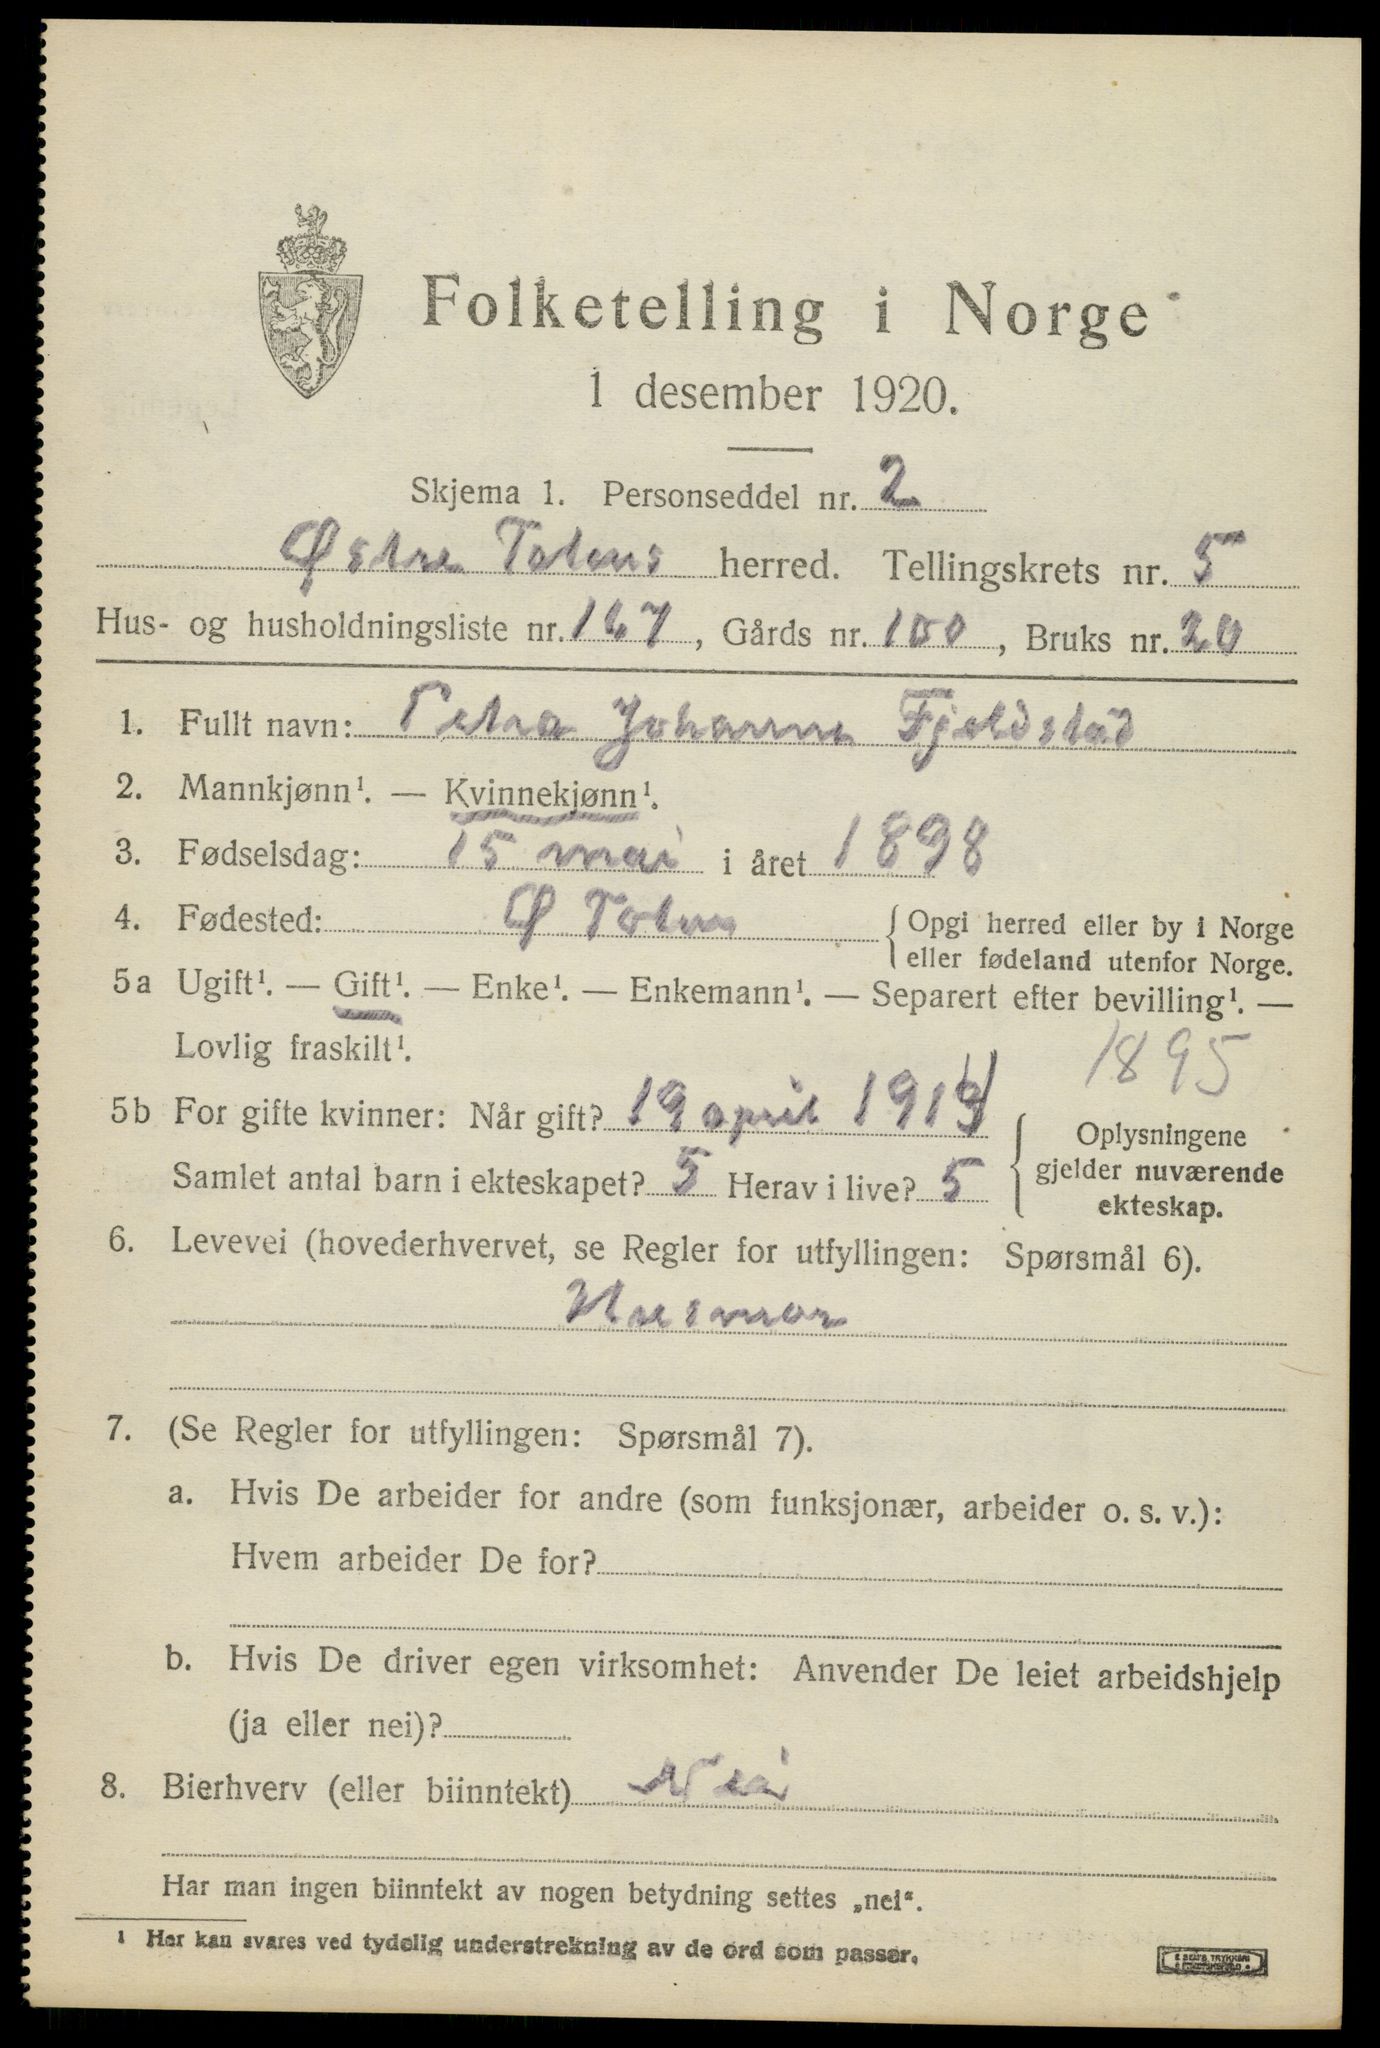 Folketelling i Norge
1 desember 1920.
Skjema 1. Personseddel nr. 2
Østre Totens herred. Tellingskrets nr. 5
Hus- og husholdningsliste nr. 167, Gårds nr. 100, Bruks nr. 20
1. Fullt navn: Petra Johanne Fjeldstad
2. Mannkjønn¹. — Kvinnekjønn¹.
3. Fødselsdag: 15 mai i året 1898
4. Fødested: Ø Toten {Opgi herred eller by i Norge
eller fødeland utenfor Norge.
5a Ugift¹. — Gift¹. — Enke¹. — Enkemann¹. — Separert efter bevilling¹. —
Lovlig fraskilt¹. 1895
5b For gifte kvinner: Når gift? 19 april 1914
Samlet antal barn i ekteskapet? 5 Herav i live? 5
{Oplysningene
gjelder nuværende
ekteskap.
6. Levevei (hovederhvervet, se Regler for utfyllingen: Spørsmål 6).
Husmor
7. (Se Regler for utfyllingen: Spørsmål 7).
a. Hvis De arbeider for andre (som funksjonær, arbeider o. s. v.):
Hvem arbeider De for?
b. Hvis De driver egen virksomhet: Anvender De leiet arbeidshjelp
(ja eller nei)?
8. Bierhverv (eller biinntekt) Nei
Har man ingen biinntekt av nogen betydning settes „nei“.
¹ Her kan svares ved tydelig understrekning av de ord som passer.